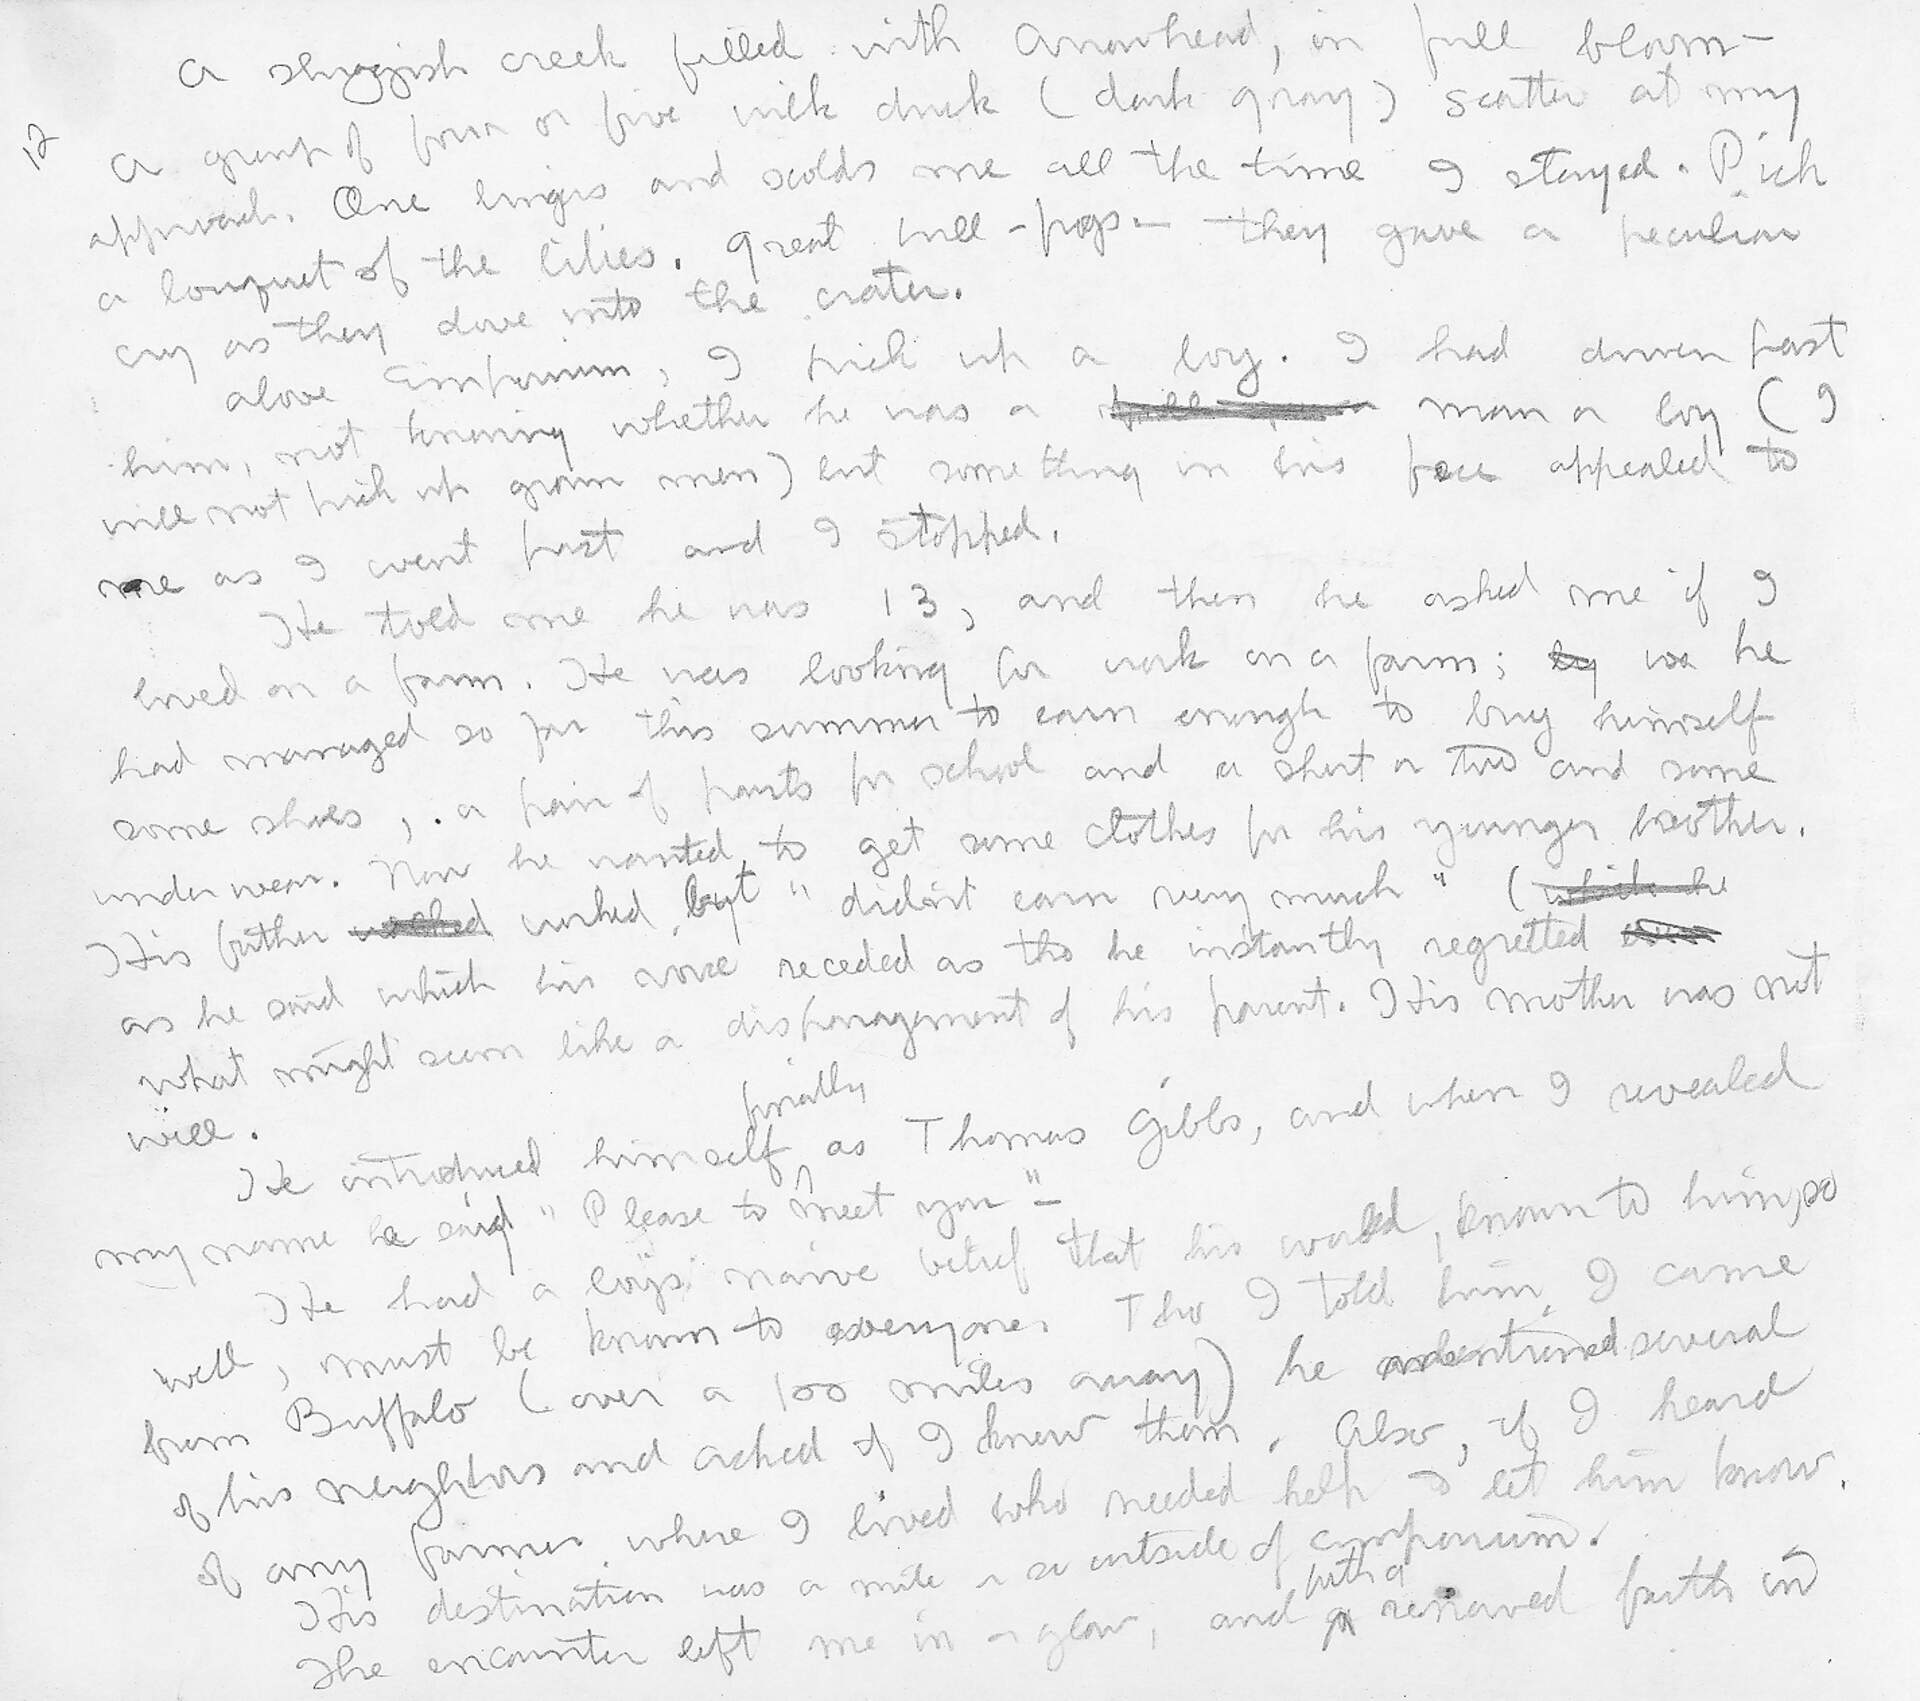 a sluggish creek filled with Arrowhead, in full bloom—
12
a group of four or five wild duck (dark gray) scatter at my
approach. One lingers and scolds me all the time I stayed. Pick
a bouquet of the lilies. Great bull-frogs— they gave a peculiar
cry as they dove into the water.
above Emporium, I pick up a boy. I had driven past
him, not knowing whether he was a man or boy (I
will not pick up grown men) but something in his face appealed to
me as I went past and I stopped.
He told me he was 13, and then he asked me if I
lived on a farm. He was looking for work on a farm; he
had managed so far this summer to earn enough to buy himself
some shoes, a pair of pants for school and a shirt or two and some
underwear. Now he wanted to get some clothes for his younger brother.
His father worked but "didn't earn very much" (
as he said which his voice receded as tho he instantly regretted
what might seem like a disparagement of his parent. His mother was not
well.
finally
He introduced himself as Thomas Gibbs, and when I revealed
my name he said "Please to meet you"—
He had a boy's naive belief that his world, known to him so
well, must be known to everyone. Tho I told him I came
from Buffalo (over a 100 miles away) he mentioned several
of his neighbors and asked if I knew them. Also, if I heard
of any farmer where I lived who needed help to let him know.
His destination was a mile or so outside of Emporium.
with a
The encounter left me in a glow, and renewed faith in